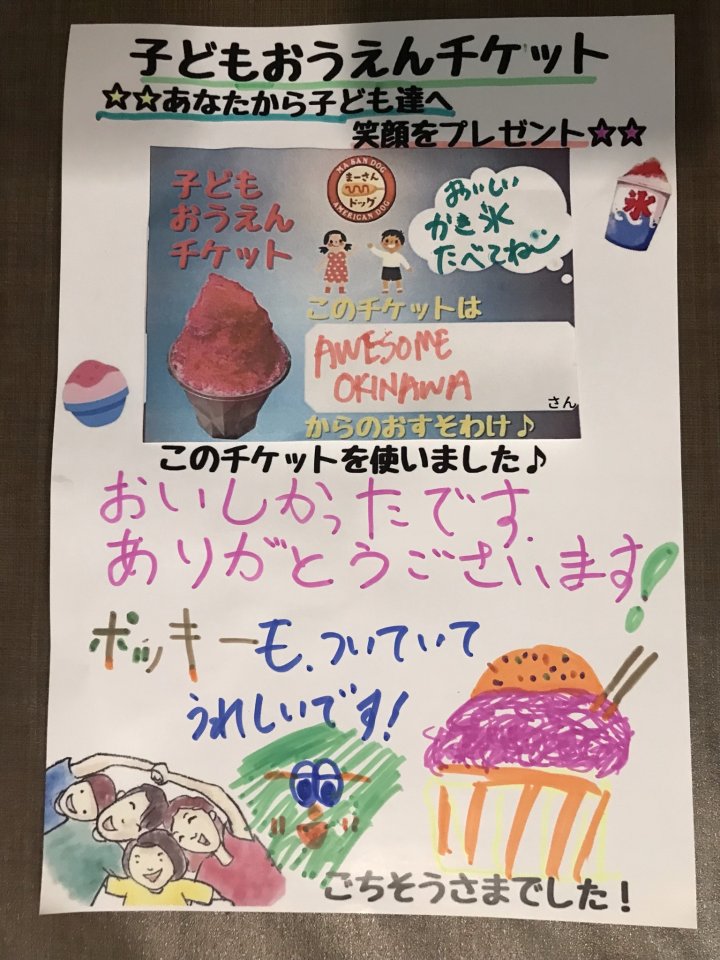 子どもおうえんチケット
☆☆あなたから子ども達へ
笑顔をプレゼント☆☆
子ども
おうえん
チケット
MA SAN DOG
まーさん
ドッグ
AMERICAN DOG
おいしい
かき氷
たべてね〜
氷
このチケットは
AWESOME
OKINAWA
さん
からのおすそわけ♪
このチケットを使いました♪
おいしかったです.
ありがとうございます!
ポッキーも、ついていて
うれしいです!
ごちそうさまでした!